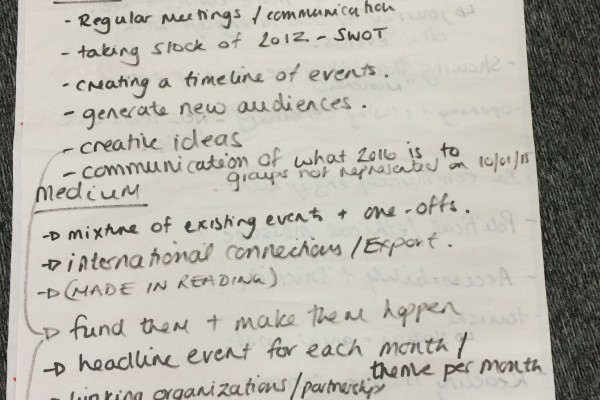 - Regular meetings / communication
- taking stock of 2012 - SWOT
- creating a timeline of events.
- generate new audiences.
- creative ideas
- communication of what 2016 is to
groups not represented on 16/01/15
Medium
→ mixture of existing events + one-offs.
→ international connections / Export.
→ (MADE IN READING)
→ fund them + make them happen
→ headline event for each month /
theme per month
linking organizations / partnerships